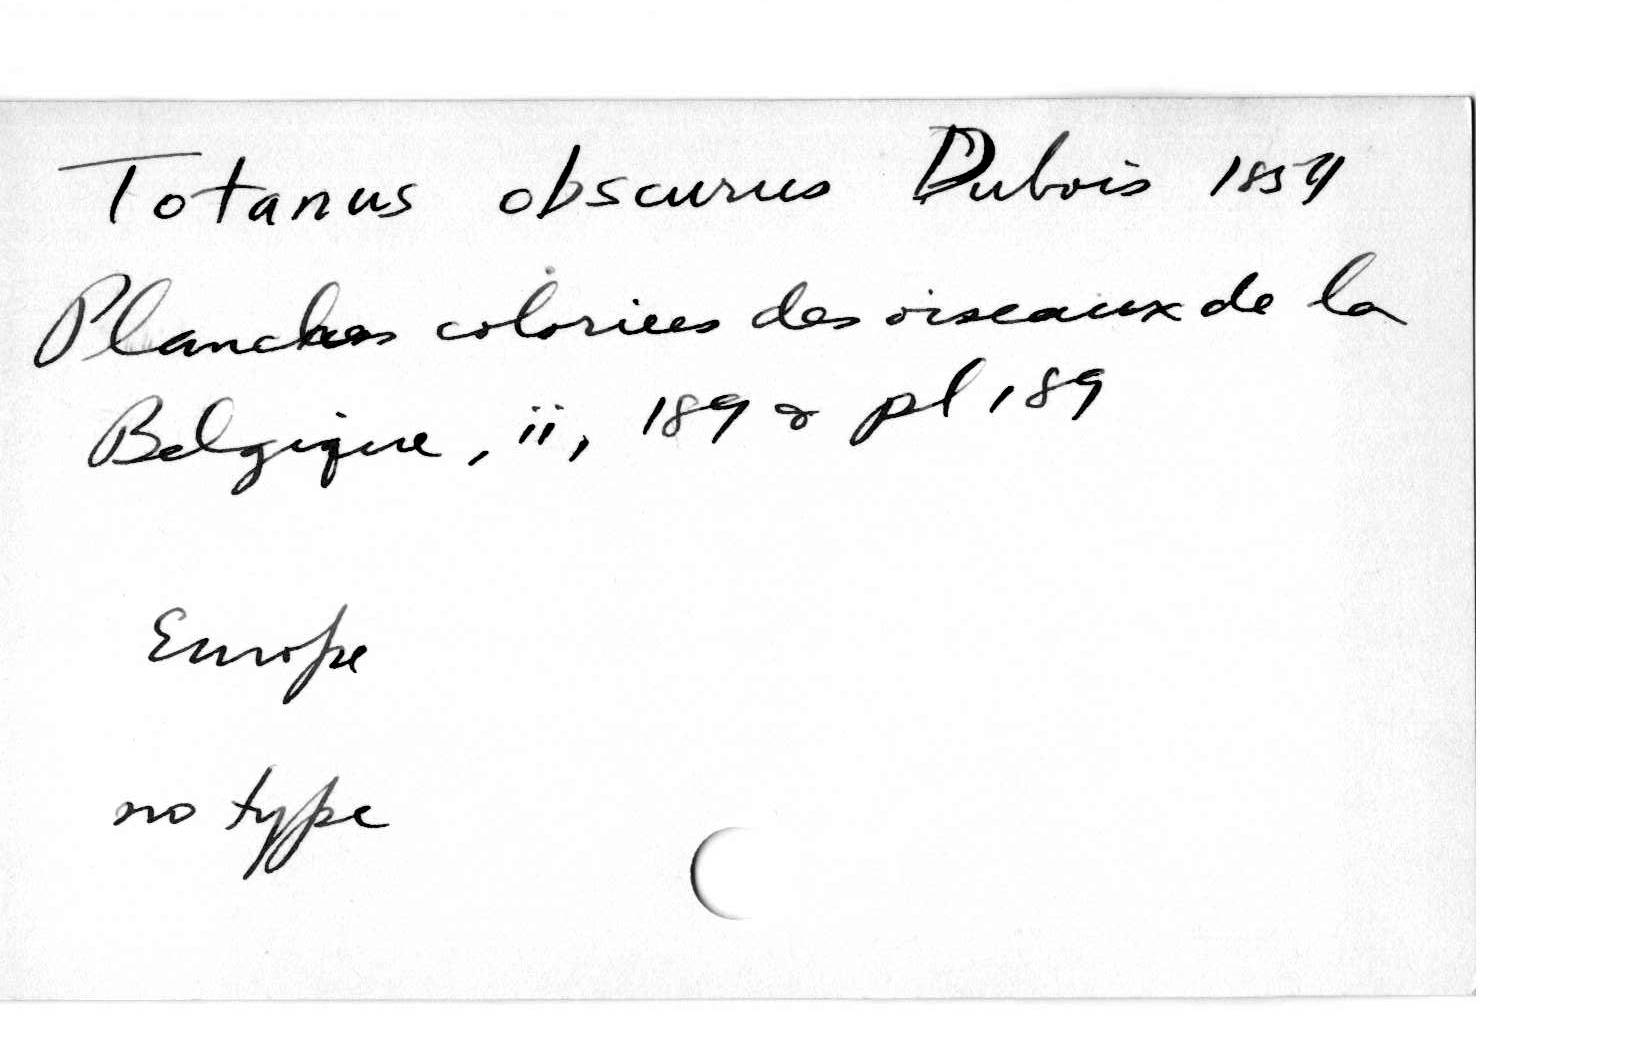 Totanus obscurus Dubois 1854
Planches coloriees des oiseaux de la
Belgique, ii, 189 & pl 189
Europe
no type